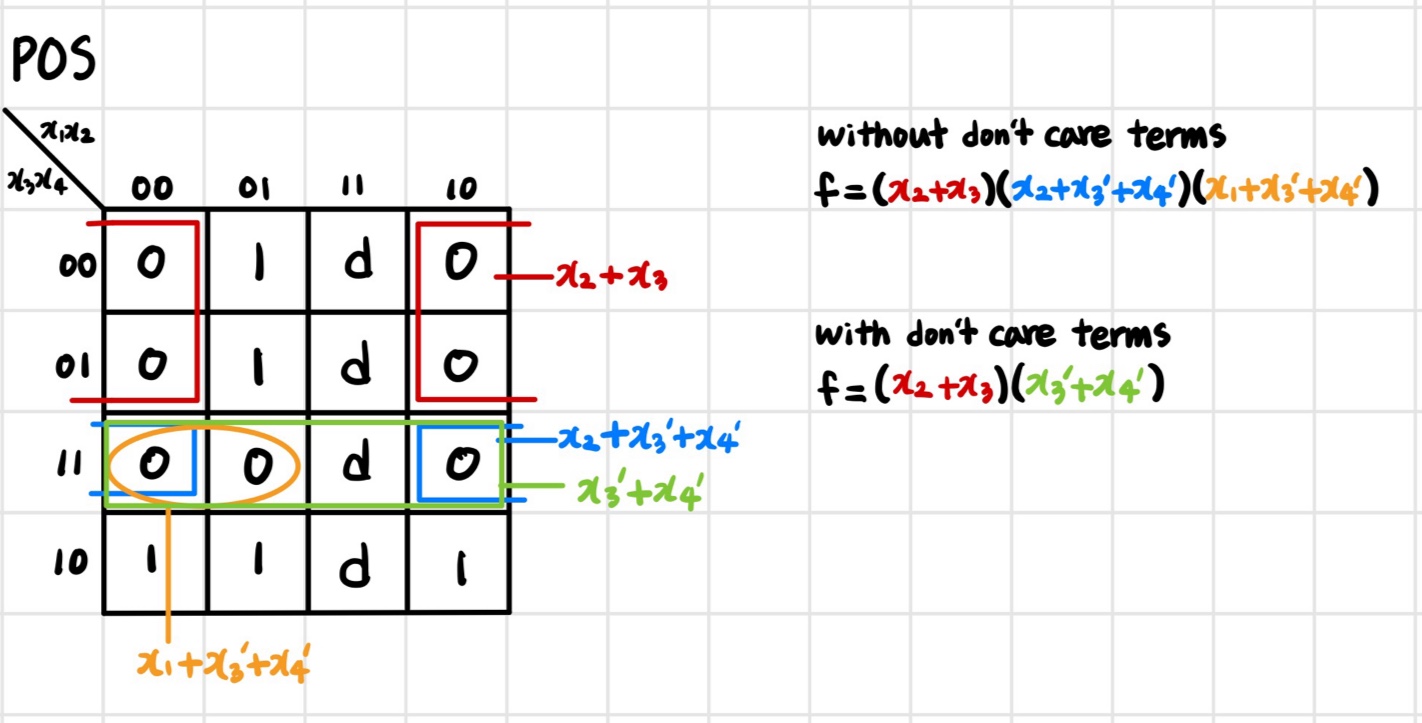 POS
x₁x₂
x₃x₄
00 01 11 10
00 0 1 d 0
x₂+x₃
01 0 1 d 0
11 0 0 d 0
x₂+x₃'+x₄'
x₃'+x₄'
10 1 1 d 1
x₁+x₃'+x₄'
without don't care terms
f=(x₂+x₃)(x₂+x₃'+x₄')(x₁+x₃'+x₄')
with don't care terms
f=(x₂+x₃)(x₃'+x₄')